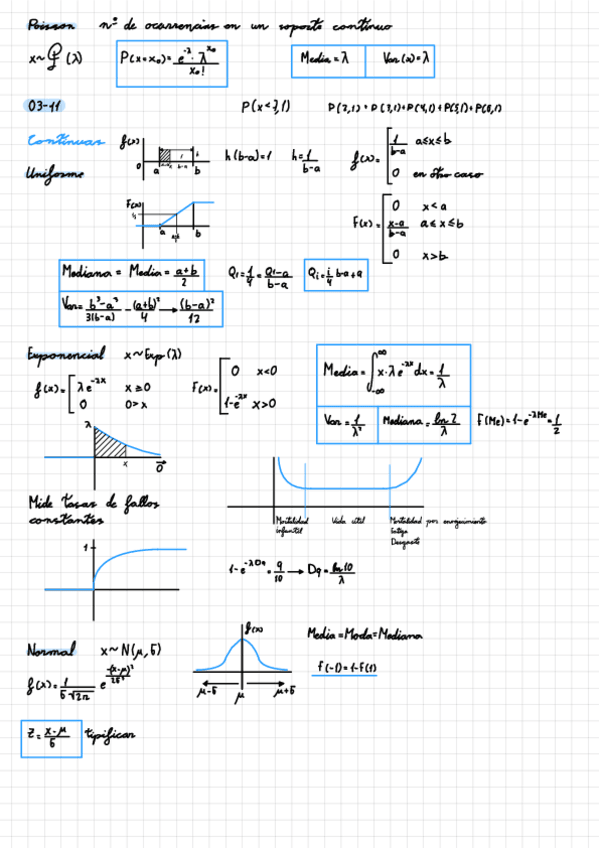 Poisson nº de ocurrencias en un soporte continuo
x~P(λ) P(x=x₀)= e^-λ · λ^x₀ / x₀! Media=λ Var(x)=λ
03-11 P(x<3,1)
Continuas f(x) 0 a b h(b-a)=1 h= 1/b-a f(x)= 1/b-a a≤x≤b
Uniforme 0 en otro caso
F(x) a b F(x)= 0 x<a
x-a/b-a a≤x≤b
0 x>b
Mediana = Media = a+b/2 Q₁=1/4= Q₁-a/b-a Qi= i/4 b-a+a
Var= b³-a³/3(b-a) - (a+b)²/4 → (b-a)²/12
Exponencial x~Exp(λ)
f(x)= λe^-λx x≥0 F(x)= 0 x<0
0 0>x 1-e^-λx x>0
Media= ∫_-∞^∞ x·λe^-λx dx= 1/λ
Var= 1/λ² Mediana= ln 2/λ F(Me)=1-e^-λMe=1/2
λ x
Mide tasas de fallos
constantes
Mortalidad infantil Vida útil Mortalidad por envejecimiento
Fatiga
Desgaste
1
1-e^-λD₉=9/10 → D₉= ln 10/λ
Normal x~N(μ,σ) f(x) Media=Moda=Mediana
f(x)= 1/σ√2π e^-(x-μ)²/2σ² f(-1)=1-F(1)
μ-σ μ μ+σ
Z= x-μ/σ tipificar